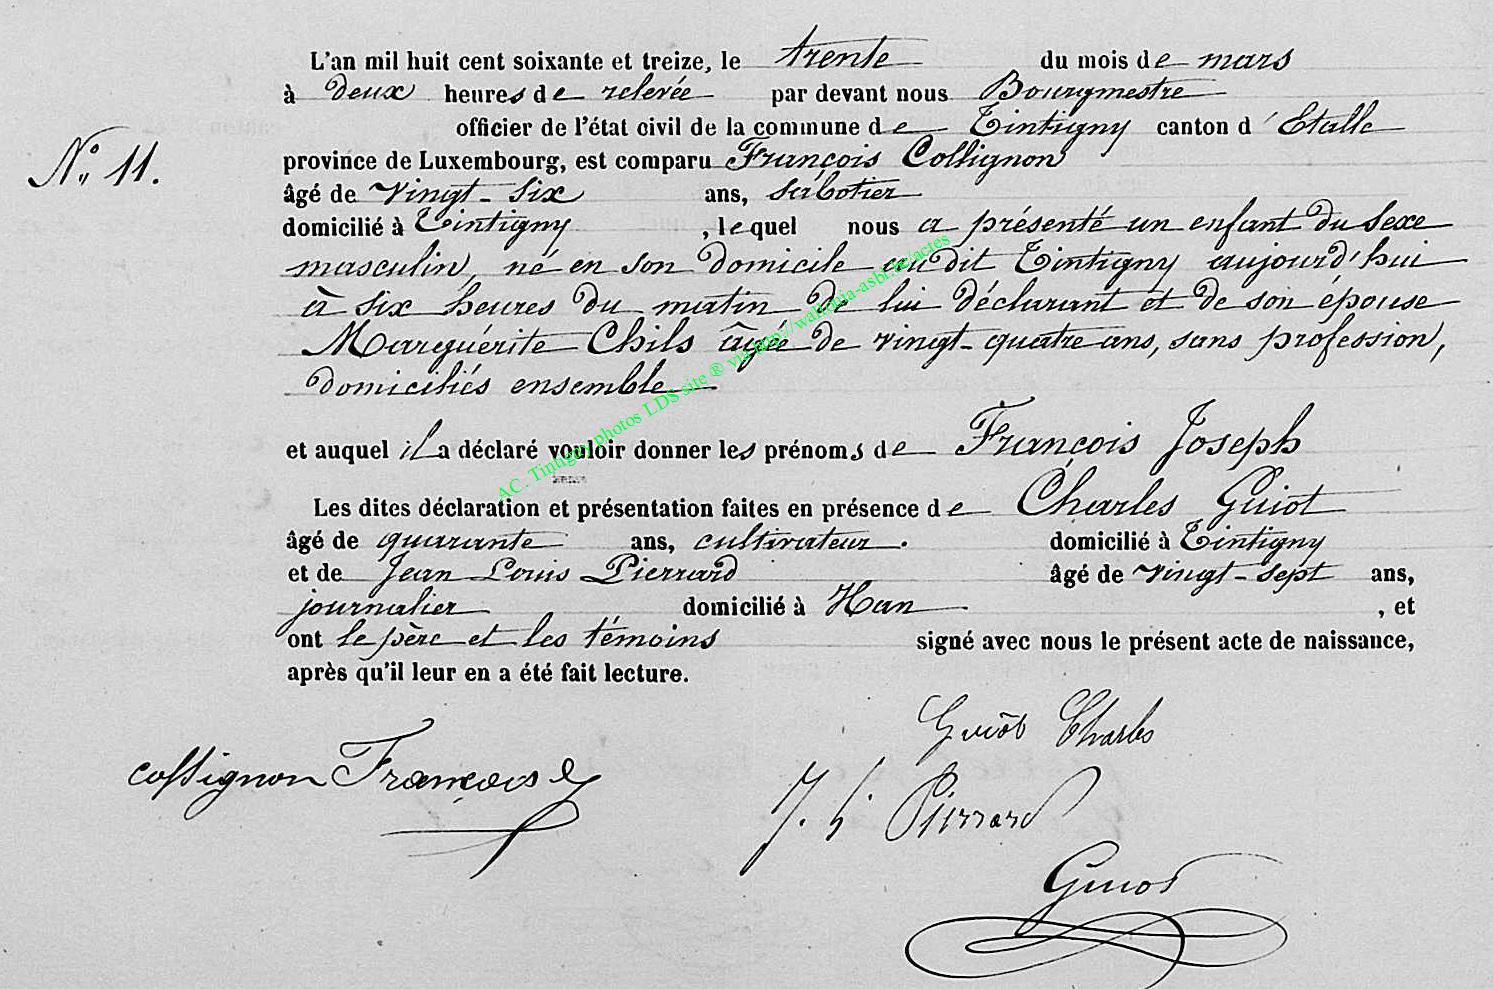 L'an mil huit cent soixante et treize, le trente du mois de mars
à deux heures de relevée par devant nous Bourgmestre
officier de l'état civil de la commune de Tintigny canton d'Etalle
N° 11.
province de Luxembourg, est comparu François Collignon
âgé de vingt-six ans, sabotier
domicilié à Tintigny, lequel nous a présenté un enfant du sexe
masculin, né en son domicile au dit Tintigny aujourd'hui
à six heures du matin de lui déclarant et de son épouse
Marguérite Chils âgée de vingt-quatre ans, sans profession,
domiciliés ensemble
et auquel il a déclaré vouloir donner les prénoms de François Joseph
Les dites déclaration et présentation faites en présence de Charles Guiot
âgé de quarante ans, cultivateur. domicilié à Tintigny
et de Jean Louis Pierrard âgé de vingt-sept ans,
journalier domicilié à Han, et
ont le père et les témoins signé avec nous le présent acte de naissance,
après qu'il leur en a été fait lecture.
Guiot Charles
collignon François
J. L. Pierrard
Guiot
AC. Tintigny photos LDS site ® via http://wallonia-asbl.be/actes